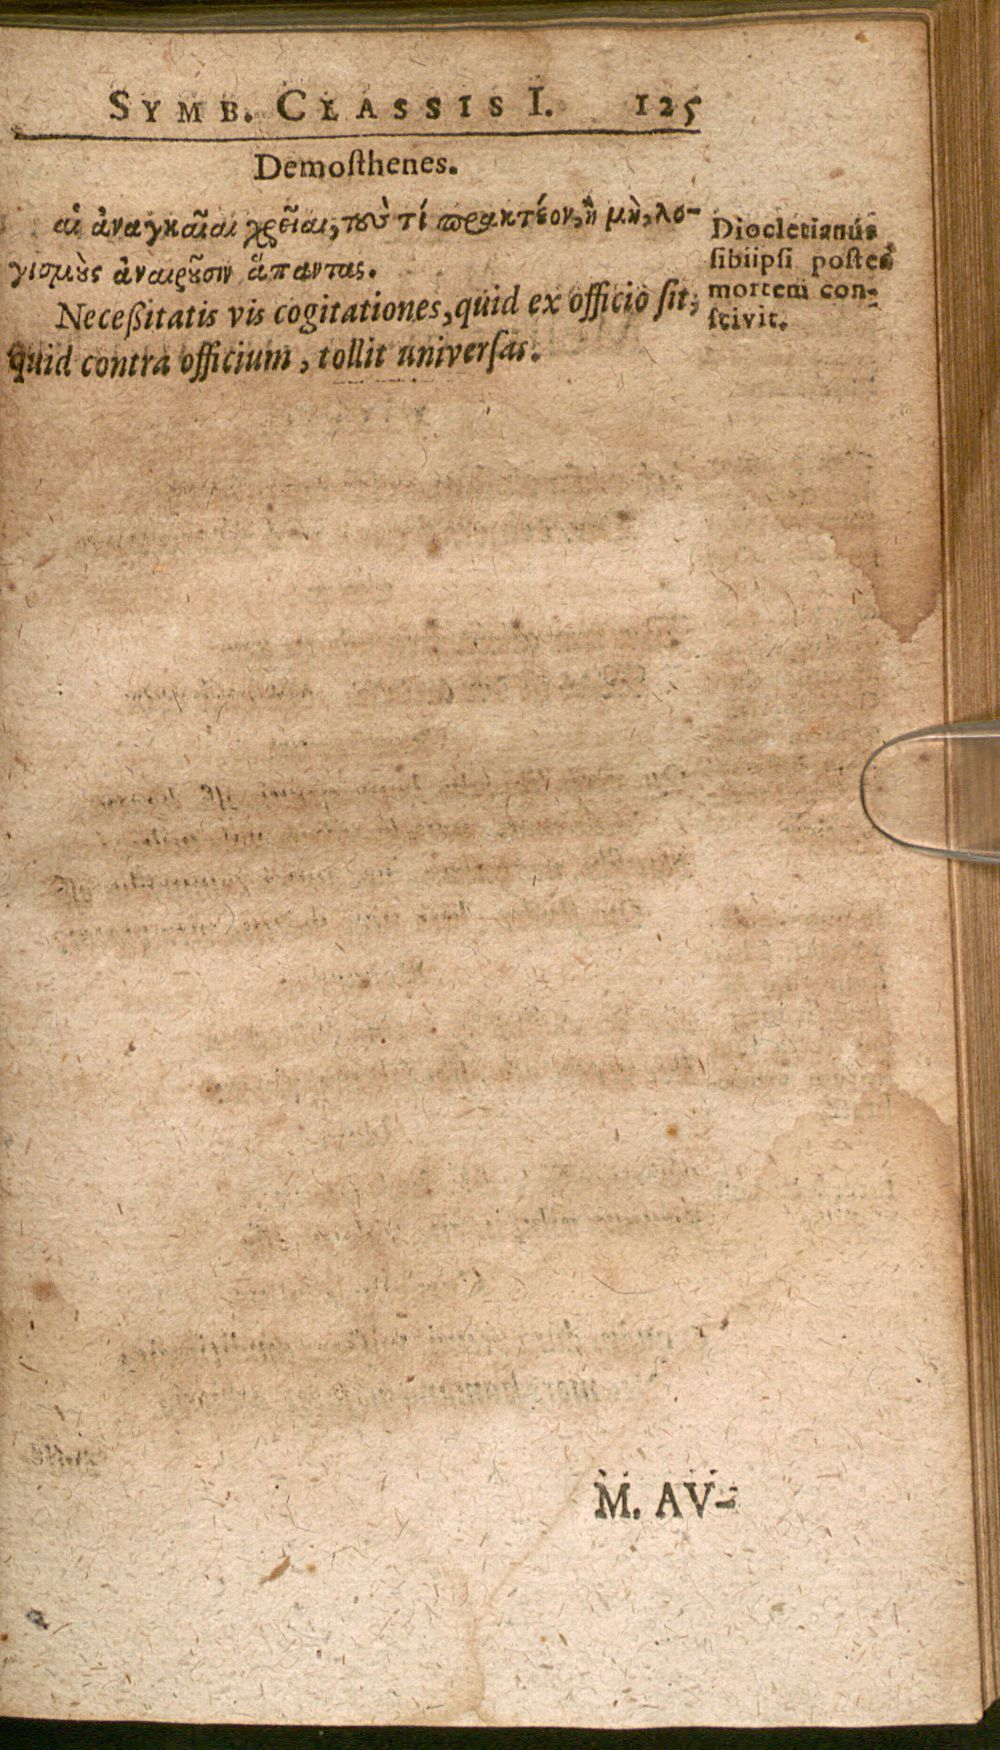 SYMB. CLASSIS I. 125
Demoſthenes.
αἱ ἀναγκαῖαι χρεῖαι, τοῦ τί πρακτέον, ἢ μὴ, λο-
γισμοὺς ἀναιροῦσιν ἅπαντας.
Neceßitatis vis cogitationes, quid ex officio ſit,
quid contra officium, tollit univerſas.
Diocletianus
ſibiipſi poſtea
mortem con-
ſcivit.
M. AV-